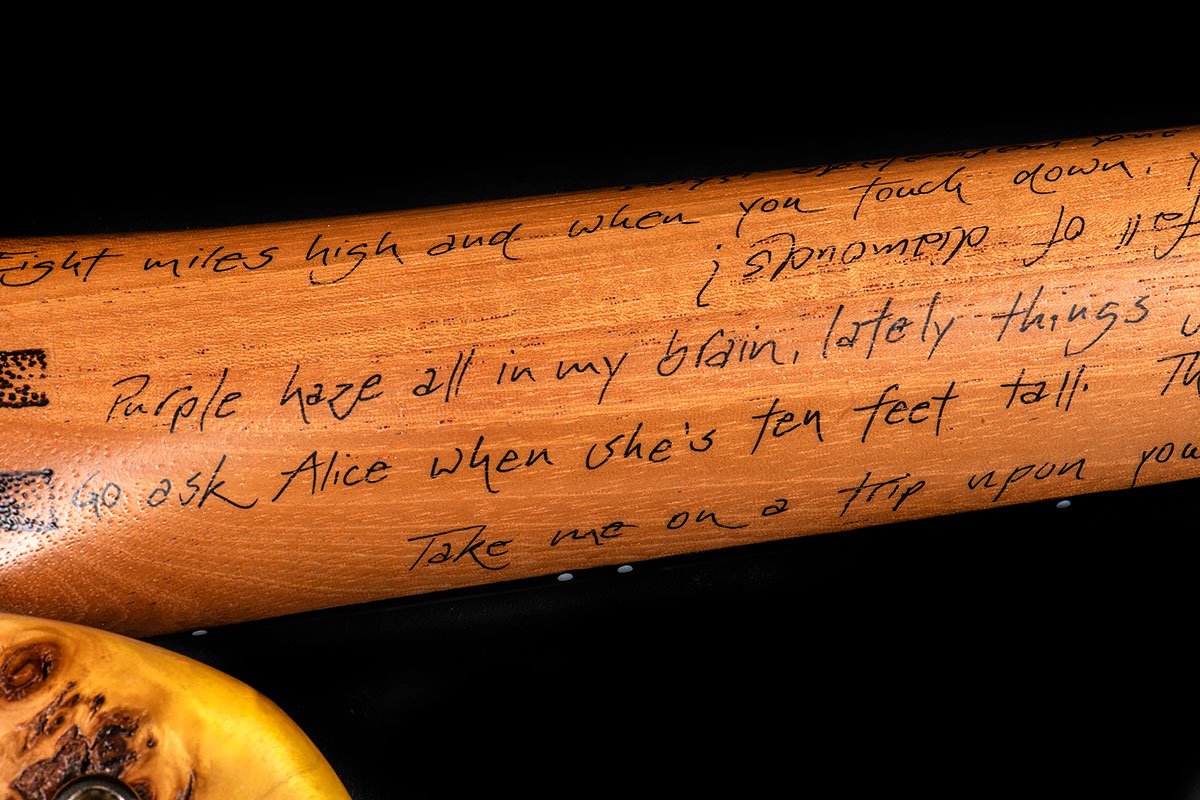 Eight miles high and when you touch down,
of diamonds?
Purple haze all in my brain, lately things
Go ask Alice when she's ten feet tall.
Take me on a trip upon